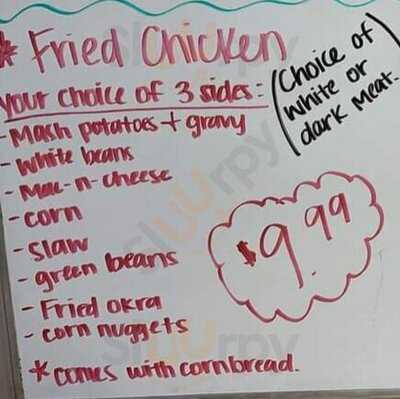 * Fried Chicken
(Choice of
white or
dark meat.
your choice of 3 sides:
- Mash potatoes + gravy
- White beans
- Mac-n-cheese
- corn
- slaw
- green beans
- Fried okra
- corn nuggets
$9.99
* comes with cornbread.
sluurpy
sluurpy
sluurpy